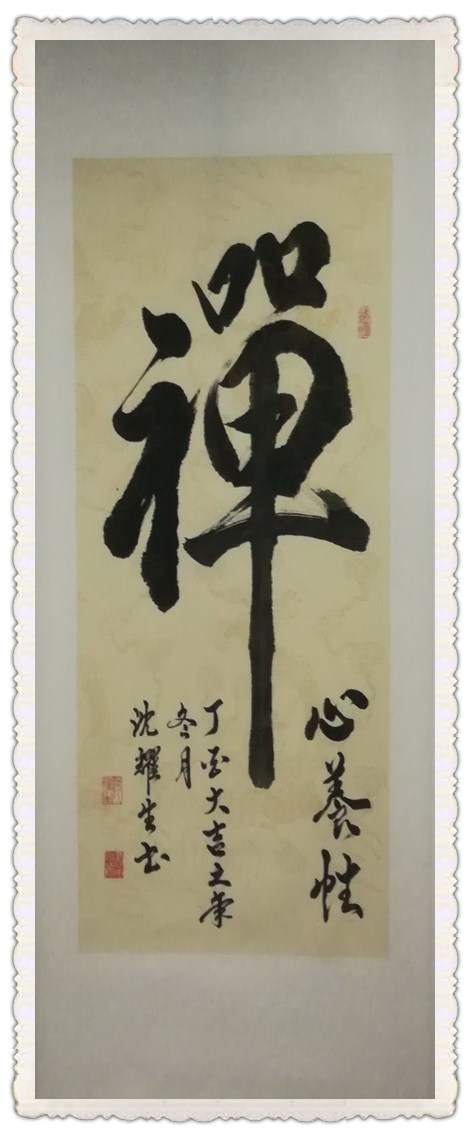 禪
心養性
丁酉大吉之年
冬月
沈耀生书